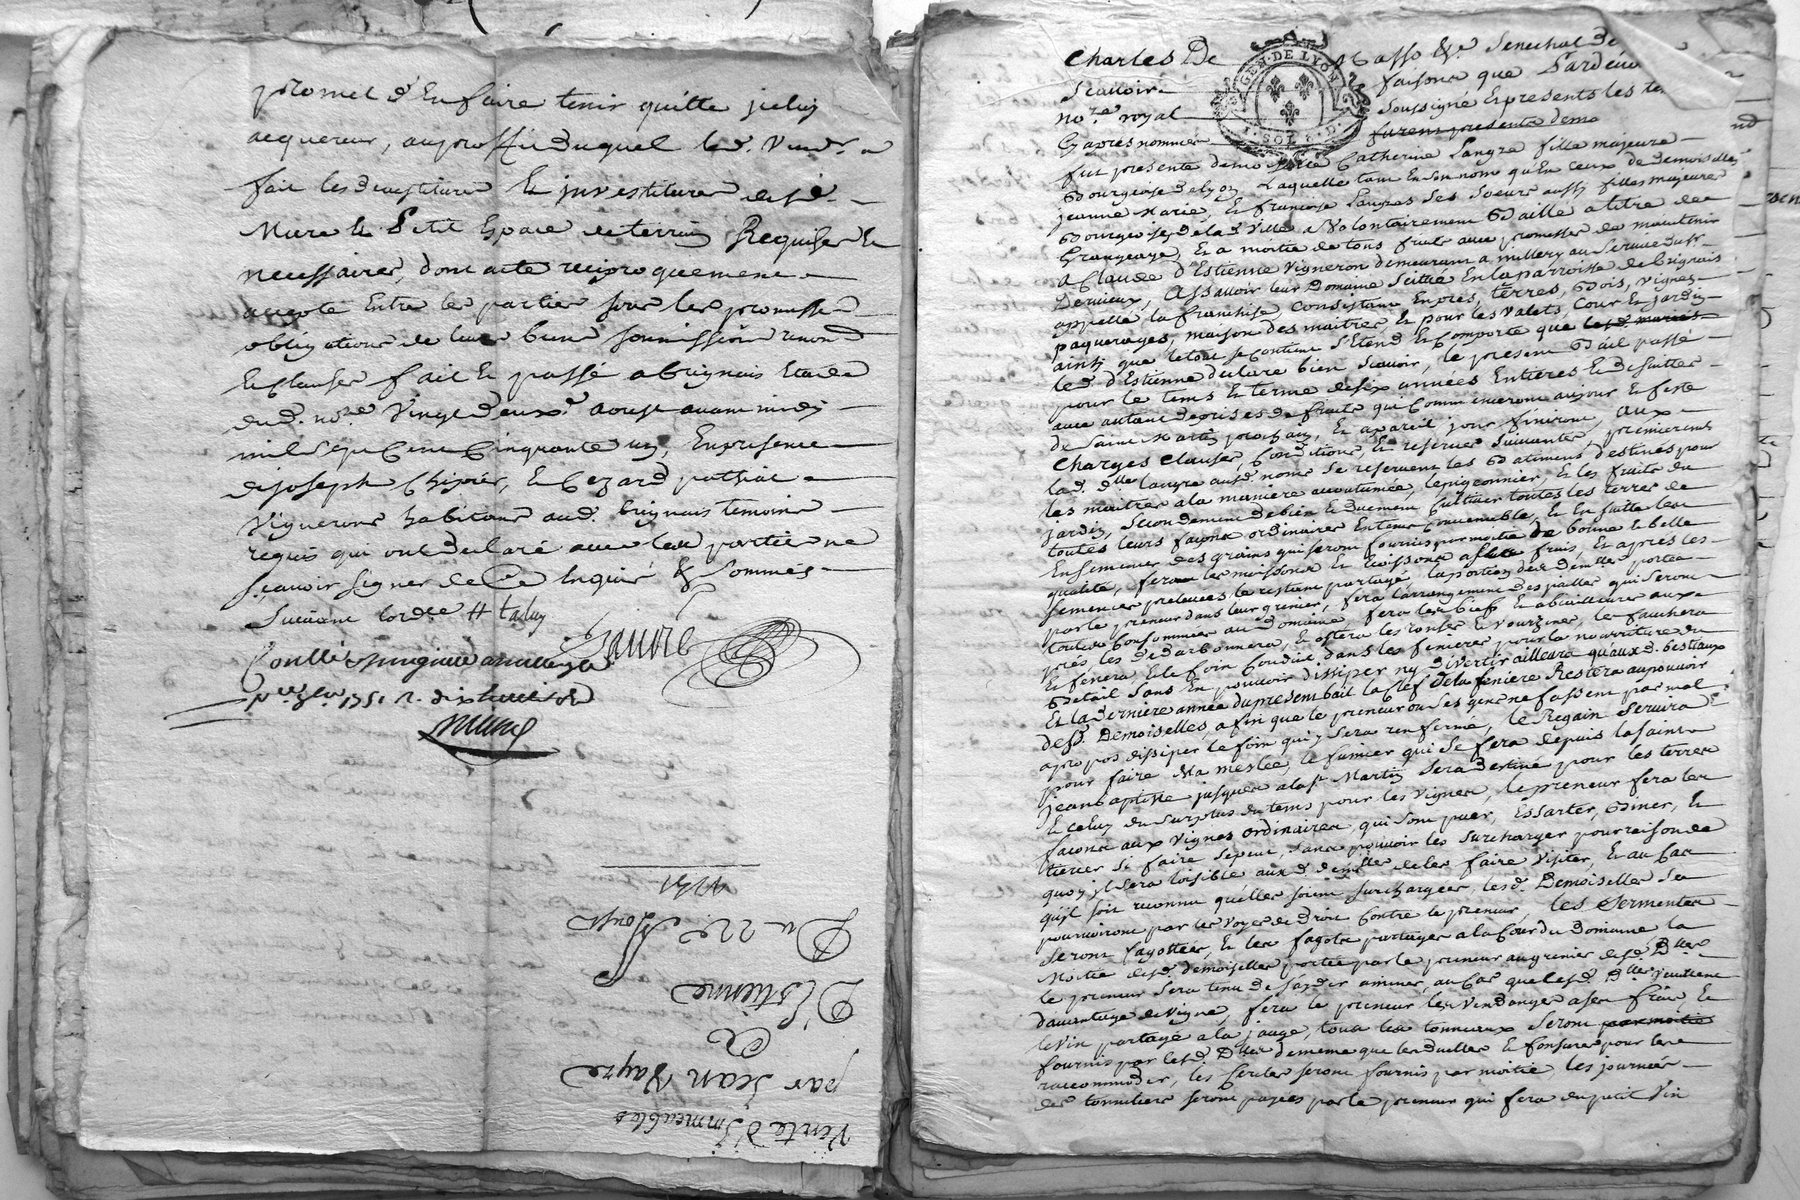 promet d'En faire tenir quitte jceluy
acquereur, au proffit duquel led. Vend.r a
fait les devestitures Et jnvestitures dud.
Mure et Petit Espace de terrein Requises Et
necessaires, dont acte reciproquement
accepté Entre les parties sous les promesses
obligations de leurs biens soumissions renon.
Et clauses fait Et passé a Brignais Etude
dud. no.re Vingt deux.e aoust avant midy
mil sept Cent Cinquante un, En presence
de joseph , Et Cezard
Vignerons habitans aud. brignais temoins
requis qui ont declaré avec les parties ne
sçavoir signer de Ce Enquis & Sommes
Suivant lordce
Faure
Conllé
1751 R. dix huit sols
Charles De Masso &c. Senechal de
Scavoir faisons que Pardevant
no.re royal soussigné Et presents les te
Cy apres nommés furent presents demo
fut presente demoiselle Catherine Langre fille majeure
Bourgeoise de lyon Laquelle tant En son nom qu'En ceux de demoiselles
jeanne Marie, Et françoise Langres ses soeurs aussy filles majeures
Bourgeoises de lad. Ville a Volontairement Baillé a titre de
Grangeage, Et a moitié de tous fruits avec promesses de maintenir
a Claude d'Estienne Vigneron demeurant a millery au service du sr.
Dervieux, Assavoir leur Domaine Scittué En la parroisse de brignais
appellé la franchise Consistant En prés, terres, Bois, vignes
paquerages, maison des maitres Et pour les Valets, Cour Et jardin
ainsy que le tout se Contient S'Etend Et Comporte que les d. mariés
led. d'Estienne declare bien Scavoir, le present Bail passé
pour le tems Et terme de six années Entieres Et
avec autant de prises de fruits qui Commenceront au jour Et feste
de Saint Martin prochain, Et a pareil jour finiront, aux
Charges Clauses, Conditions Et reserves Suivantes, premierement
lad. dlle Langre aud. noms se reservent les Batiments destinés pour
les maitres a la maniere accoutumée, le pigeonnier, Et les fruits du
jardin, Secondement de bien Et duement Cultiver toutes les terres de
toutes leurs façons ordinaires En tems Convenable, Et En suitte les
Ensemencer des grains qui seront fournis par moitié de bonne Et belle
qualité, fera les moissons Et a ses frais, Et apres les
semences prelevées le restant partagé, la portion des d. demlles portée
par le preneur dans leur grenier, fera l'arrangement des pailles qui seront
toutes Consommées au Domaine, fera les biefs Et abreuvages aux
prés, les , Et ostera les ronses Et , les fauchera
Et fenera, Et le foin Conduit dans les fenieres pour la nourriture du
Betail Sans En pouvoir dissiper ny divertir ailleurs qu'aux d. bestiaux
Et la derniere année du present bail la clef de la feniere Restera au pouvoir
desd. Demoiselles, afin que le preneur ou ses gens ne fassent par mal
apropos dissiper le foin qui y sera renfermé, le Regain servira
pour faire la meslée, le fumier qui se fera depuis la saint
jean baptiste jusques a la st Martin sera destiné pour les terres
Et celuy du surplus du tems pour les vignes, le preneur fera les
façons aux vignes ordinaires, qui sont puer, Essarter, Biner, Et
tiercer si faire se peut, sans pouvoir les surcharger pour raison de
quoy il sera loisible aux d. demlles de les faire visiter, Et au cas
qu'il soit reconnu qu'elles soient surchargées, lesd. Demoiselles se
pourvoiront par les voyes de droit Contre le preneur, les sermentes
seront fagottées, Et les fagots partagés a la Cour du Domaine la
Moitié desd. demoiselles portée par le preneur au grenier desd. Dlles
le preneur sera tenu de s'ayder a miner, au Cas que lesd. Dlles Veuillent
davantage de vigne, fera le preneur les Vendanges a ses frais Et
le vin partagé a la jauge, tous les tonneaux seront par moitié
fournis par lesd. Dlles de meme que les douelles Et fonsures pour les
raccommoder, les Cercles seront fournis par moitié les journées
des tonneliers seront payées par le preneur qui fera du petit Vin
GEN. DE LYON
1. SOL 8. D.
Vente d'Immeubles
par Jean Fayre
A
D'Estienne
Du 22e. Aoust
1751